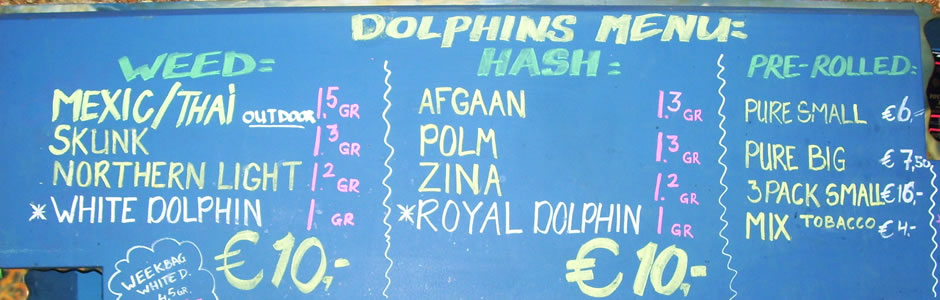 DOLPHINS MENU=
WEED=
MEXIC/THAI OUTDOOR 1.5 GR
SKUNK 1.3 GR
NORTHERN LIGHT 1.2 GR
*WHITE DOLPHIN 1 GR
€10,-
WEEKBAG
WHITE D.
4.5 GR.
HASH=
AFGAAN 1.3 GR
POLM 1.3 GR
ZINA 1.2 GR
*ROYAL DOLPHIN 1 GR
€10,-
PRE-ROLLED=
PURE SMALL €6,-
PURE BIG €7,50
3 PACK SMALL €16,-
MIX TOBACCO €4,-